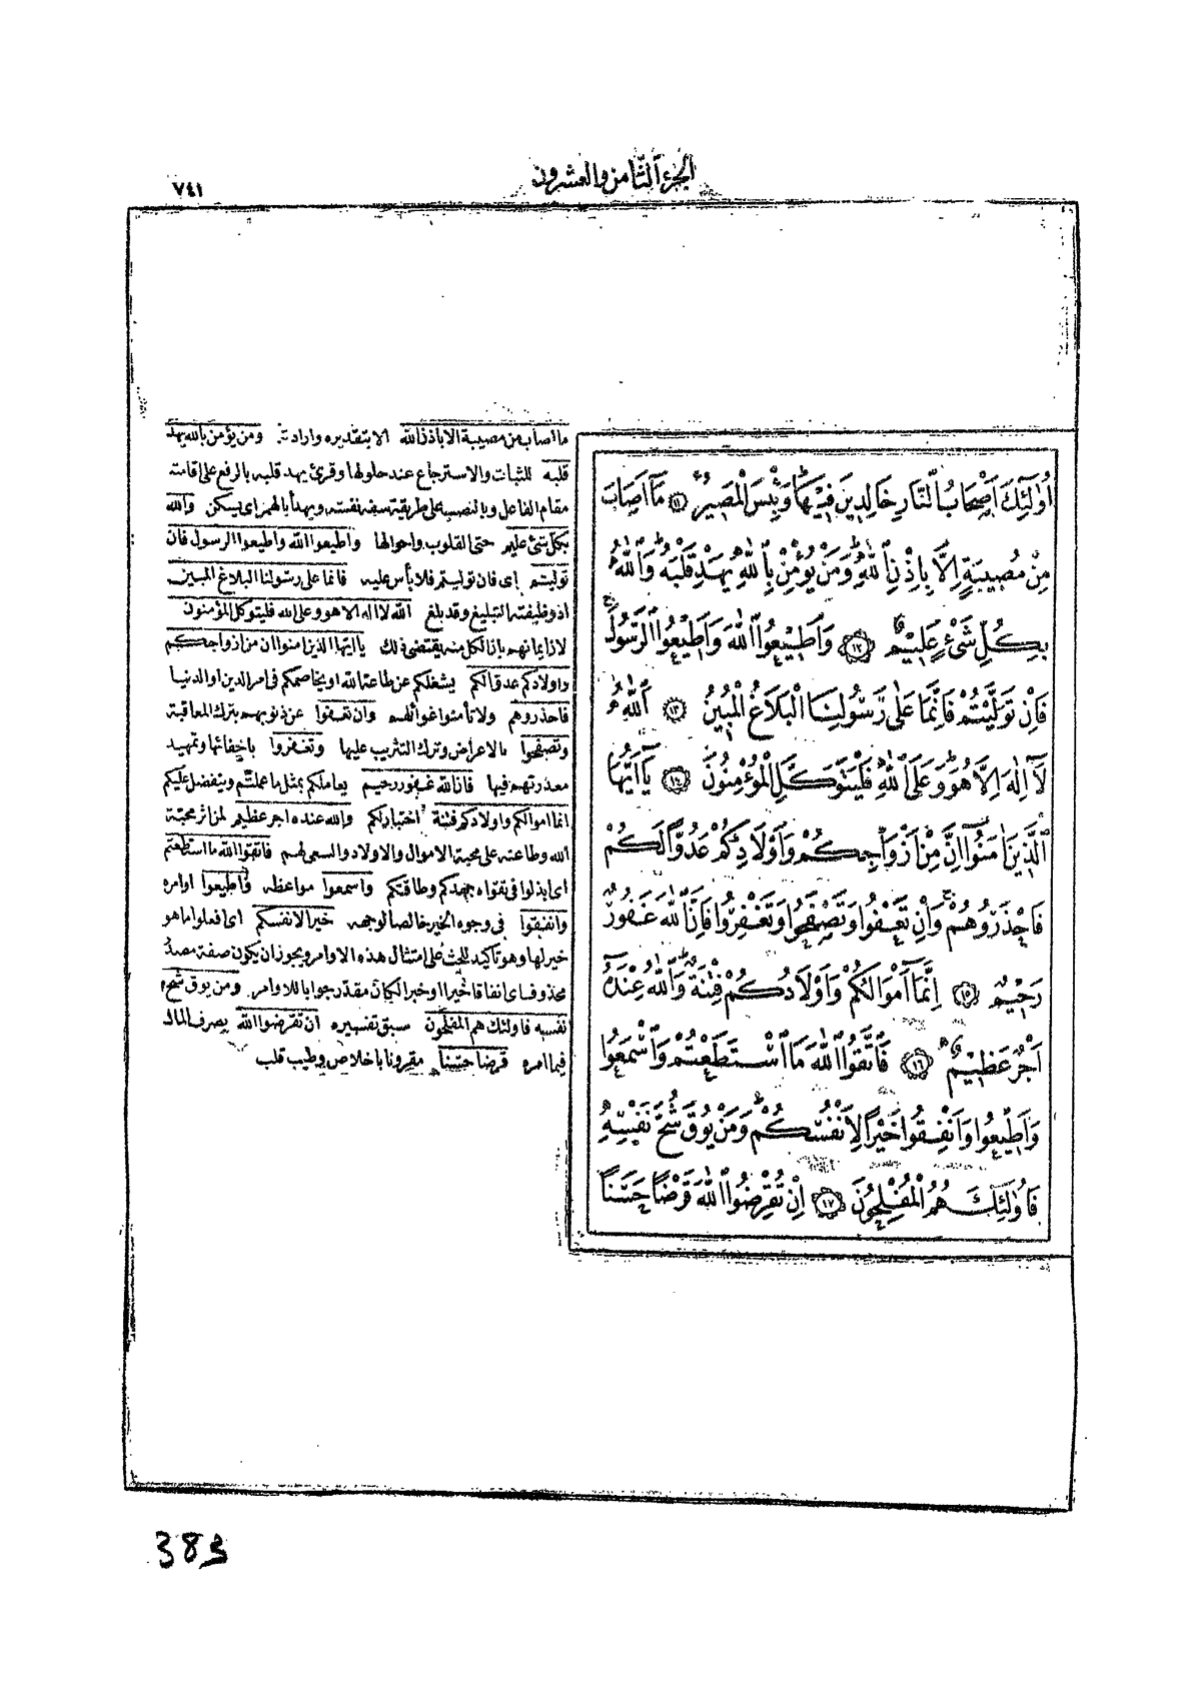 الجزء الثامن والعشرون
٧٤١
اُولٰٓئِكَ اَصْحَابُ النَّارِ خَالِدٖينَ فٖيهَاۜ وَبِئْسَ الْمَصٖيرُ ﴿١١﴾ مَٓا اَصَابَ
مِنْ مُصٖيبَةٍ اِلَّا بِاِذْنِ اللّٰهِۜ وَمَنْ يُؤْمِنْ بِاللّٰهِ يَهْدِ قَلْبَهُۜ وَاللّٰهُ
بِكُلِّ شَيْءٍ عَلٖيمٌ ﴿١٢﴾ وَاَطٖيعُوا اللّٰهَ وَاَطٖيعُوا الرَّسُولَۚ
فَاِنْ تَوَلَّيْتُمْ فَاِنَّمَا عَلٰى رَسُولِنَا الْبَلَاغُ الْمُبٖينُ ﴿١٣﴾ اَللّٰهُ
لَٓا اِلٰهَ اِلَّا هُوَۜ وَعَلَى اللّٰهِ فَلْيَتَوَكَّلِ الْمُؤْمِنُونَ ﴿١٤﴾ يَٓا اَيُّهَا
الَّذٖينَ اٰمَنُٓوا اِنَّ مِنْ اَزْوَاجِكُمْ وَاَوْلَادِكُمْ عَدُوًّا لَكُمْ
فَاحْذَرُوهُمْۚ وَاِنْ تَعْفُوا وَتَصْفَحُوا وَتَغْفِرُوا فَاِنَّ اللّٰهَ غَفُورٌ
رَحٖيمٌ ﴿١٥﴾ اِنَّمَٓا اَمْوَالُكُمْ وَاَوْلَادُكُمْ فِتْنَةٌۜ وَاللّٰهُ عِنْدَهُٓ
اَجْرٌ عَظٖيمٌ ﴿١٦﴾ فَاتَّقُوا اللّٰهَ مَا اسْتَطَعْتُمْ وَاسْمَعُوا
وَاَطٖيعُوا وَاَنْفِقُوا خَيْرًا لِاَنْفُسِكُمْۜ وَمَنْ يُوقَ شُحَّ نَفْسِهٖ
فَاُولٰٓئِكَ هُمُ الْمُفْلِحُونَ ﴿١٧﴾ اِنْ تُقْرِضُوا اللّٰهَ قَرْضًا حَسَنًا
ما اصاب من مصيبة الا باذن الله الا بتقديره وارادته ومن يؤمن بالله يهد
قلبه للثبات والاسترجاع عند حلولها وقرئ يهد قلبه بالرفع على اقامته
مقام الفاعل وبالنصب على طريقة سفه نفسه ويهدأ بالهمز اى يسكن والله
بكل شئ عليم حتى القلوب واحوالها واطيعوا الله واطيعوا الرسول فان
توليتم اى فان توليتم فلا بأس عليه فانما على رسولنا البلاغ المبين
اذ وظيفته التبليغ وقد بلغ الله لا اله الا هو وعلى الله فليتوكل المؤمنون
لان ايمانهم بان الكل منه يقتضى ذلك يا ايها الذين امنوا ان من ازواجكم
واولادكم عدوا لكم يشغلكم عن طاعة الله او يخاصمكم فى امر الدين او الدنيا
فاحذروهم ولا تأمنوا غوائلهم وان تعفوا عن ذنوبهم بترك المعاقبة
وتصفحوا بالاعراض وترك التثريب عليها وتغفروا باخفائها وتمهيد
معذرتهم فيها فان الله غفور رحيم يعاملكم بمثل ما عملتم ويتفضل عليكم
انما اموالكم واولادكم فتنة اختبار لكم والله عنده اجر عظيم لمن اثر محبة
الله وطاعته على محبة الاموال والاولاد والسعى لهم فاتقوا الله ما استطعتم
اى ابذلوا فى تقواه جهدكم وطاقتكم واسمعوا مواعظه واطيعوا اوامره
وانفقوا فى وجوه الخير خالصا لوجهه خيرا لانفسكم اى افعلوا ما هو
خير لها وهو تأكيد للحث على امتثال هذه الاوامر ويجوز ان يكون صفة مصدر
محذوف اى انفاقا خيرا او خبر الكان مقدر جوابا للاوامر ومن يوق شح
نفسه فاولئك هم المفلحون سبق تفسيره ان تقرضوا الله بصرف المال
فيما امره قرضا حسنا مقرونا باخلاص وطيب قلب
383